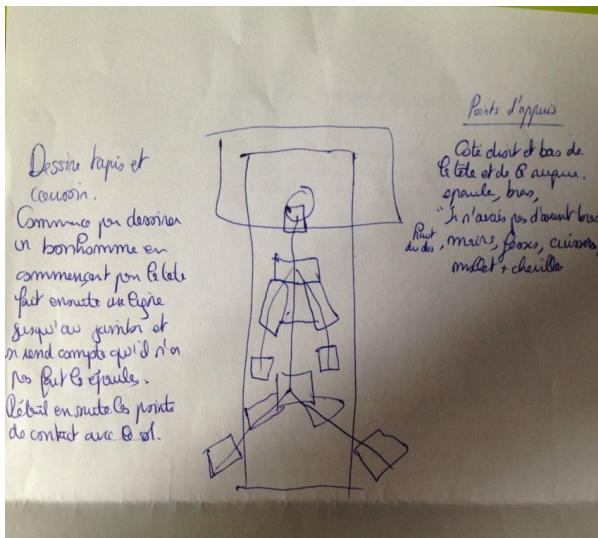 Dessine tapis et
coussin.
Commence par dessiner
un bonhomme en
commençant par la tête
fait ensuite une ligne
jusqu'au jambes et
se rend compte qu'il n'a
pas fait les épaules.
Détail ensuite les points
de contact avec le sol.
Points d'appuis
Côté droit et bas de
la tête et de la nuque.
epaule, bras,
"Je n'avais pas d'avant bras
Haut
du dos, mains, fesses, cuisses,
mollet + cheville